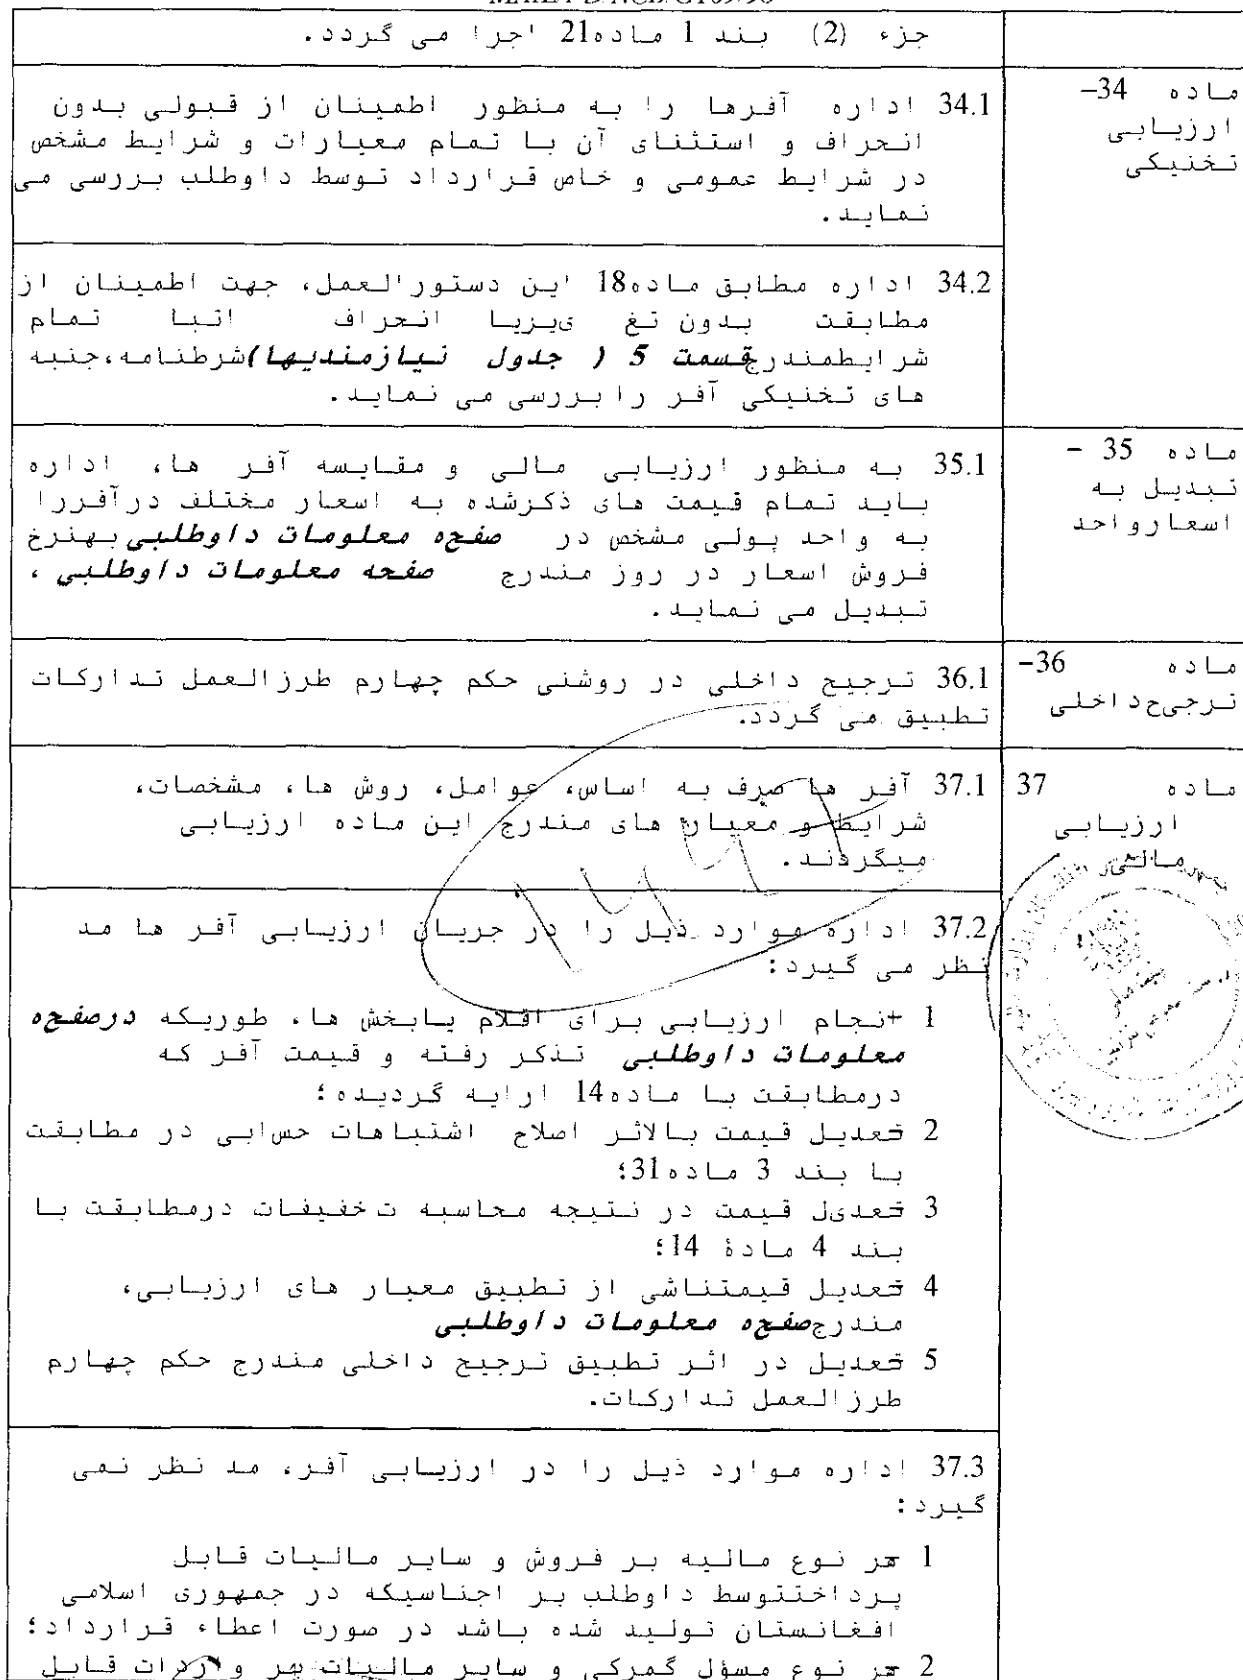 جزء (2) بند 1 ماده21 اجرا می گردد.
ماده 34-
ارزیابی
تخنیکی
34.1 اداره آفرها را به منظور اطمینان از قبولی بدون
انحراف و استثنای آن با تمام معیارات و شرایط مشخص
در شرایط عمومی و خاص قرارداد توسط داوطلب بررسی می
نماید.
34.2 اداره مطابق ماده18 این دستورالعمل، جهت اطمینان از
مطابقت بدون تغ ییزیا انحراف اتبا تمام
شرایطمندرجقسمت 5 ( جدول نیازمندیها)شرطنامه،جنبه
های تخنیکی آفر را بررسی می نماید.
ماده 35 -
تبدیل به
اسعارواحد
35.1 به منظور ارزیابی مالی و مقایسه آفر ها، اداره
باید تمام قیمت های ذکرشده به اسعار مختلف درآفررا
به واحد پولی مشخص در صفحه معلومات داوطلبی بهنرخ
فروش اسعار در روز مندرج صفحه معلومات داوطلبی ،
تبدیل می نماید.
ماده 36-
ترجیح داخلی
36.1 ترجیح داخلی در روشنی حکم چهارم طرزالعمل تدارکات
تطبیق می گردد.
ماده 37
ارزیابی
مالی
37.1 آفر ها صرف به اساس، عوامل، روش ها، مشخصات،
شرایط و معیار های مندرج این ماده ارزیابی
میگردند.
37.2 اداره موارد ذیل را در جریان ارزیابی آفر ها مد
نظر می گیرد:
1 انجام ارزیابی برای اقلام یابخش ها، طوریکه درصفحه
معلومات داوطلبی تذکر رفته و قیمت آفر که
درمطابقت با ماده14 ارایه گردیده؛
2 تعدیل قیمت بالاثر اصلاح اشتباهات حسابی در مطابقت
با بند 3 ماده31؛
3 تعدیل قیمت در نتیجه محاسبه تخفیفات درمطابقت با
بند 4 مادۀ 14؛
4 تعدیل قیمتناشی از تطبیق معیار های ارزیابی،
مندرجصفحه معلومات داوطلبی
5 تعدیل در اثر تطبیق ترجیح داخلی مندرج حکم چهارم
طرزالعمل تدارکات.
37.3 اداره موارد ذیل را در ارزیابی آفر، مد نظر نمی
گیرد:
1 هر نوع مالیه بر فروش و سایر مالیات قابل
پرداختتوسط داوطلب بر اجناسیکه در جمهوری اسلامی
افغانستان تولید شده باشد در صورت اعطاء قرارداد؛
2 هر نوع مسؤل گمرکی و سایر مالیات بر واردات قابل